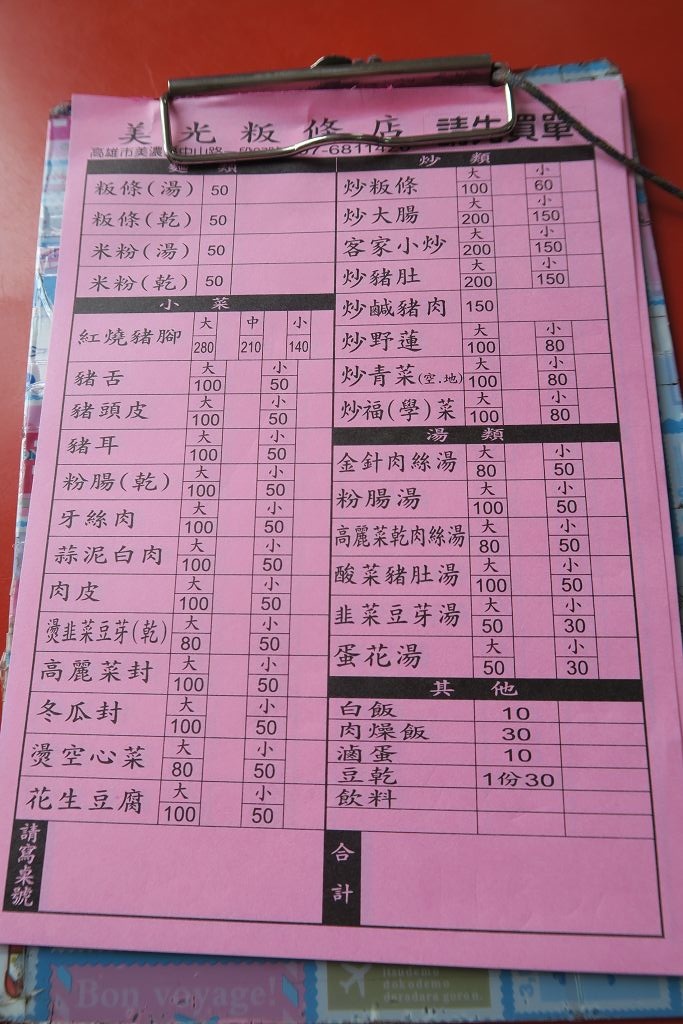 美光粄條店 請先買單
高雄市美濃 中山路一段
麵類
粄條(湯) 50
粄條(乾) 50
米粉(湯) 50
米粉(乾) 50
小菜
紅燒豬腳 大 280 中 210 小 140
豬舌 大 100 小 50
豬頭皮 大 100 小 50
豬耳 大 100 小 50
粉腸(乾) 大 100 小 50
牙絲肉 大 100 小 50
蒜泥白肉 大 100 小 50
肉皮 大 100 小 50
燙韭菜豆芽(乾) 大 80 小 50
高麗菜封 大 100 小 50
冬瓜封 大 100 小 50
燙空心菜 大 80 小 50
花生豆腐 大 100 小 50
請寫桌號
炒類
炒粄條 大 100 小 60
炒大腸 大 200 小 150
客家小炒 大 200 小 150
炒豬肚 大 200 小 150
炒鹹豬肉 150
炒野蓮 大 100 小 80
炒青菜(空.地) 大 100 小 80
炒福(學)菜 大 100 小 80
湯類
金針肉絲湯 大 80 小 50
粉腸湯 大 100 小 50
高麗菜乾肉絲湯 大 80 小 50
酸菜豬肚湯 大 100 小 50
韭菜豆芽湯 大 50 小 30
蛋花湯 大 50 小 30
其他
白飯 10
肉燥飯 30
滷蛋 10
豆乾 1份30
飲料
合計
Bon voyage!
itsudemo
dokodemo
doradara goron.